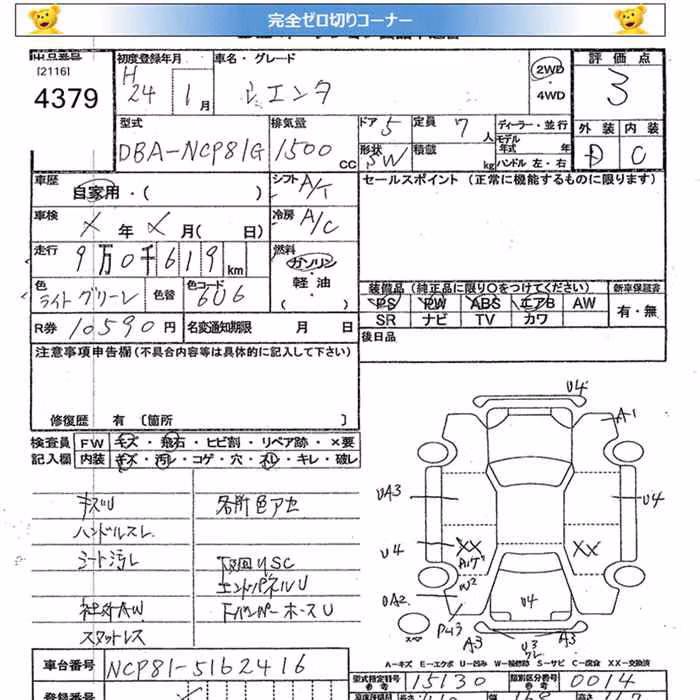 完全ゼロ切りコーナー
出品番号
[2116]
4379
初度登録年月
H 24年 1月
車名・グレード
シエンタ
2WD
・4WD
評価点
3
外装 内装
D C
型式
DBA-NCP81G
排気量
1500 CC
ドア 5
形状 SW
定員 7人
積載 kg
ディーラー・並行
モデル年式 年
ハンドル 左・右
車歴
自家用・( )
シフト A/T
セールスポイント (正常に機能するものに限る)
車検
X年 X月( 日)
冷房 A/C
走行
9万0千619km
燃料
ガソリン
軽油
・( )
色
ライトグリーン
色替
色コード
6U6
装備品 (純正品に限り○をつけてください)
新車保証書
PS PW ABS エアB AW
SR ナビ TV カワ
有・無
R券 10590円
名変通知期限 月 日
後日品
注意事項申告欄(不具合内容等は具体的に記入して下さい)
修復歴 有 〔箇所 〕
検査員 FW キズ・飛石・ヒビ割・リペア跡・×要
記入欄 内装 キズ・汚レ・コゲ・穴・スレ・キレ・破レ
キズU
ハンドルスレ
シート汚レ
社外AW
スタットレス
各所色アセ
下回りSC
エンドパネルU
FバンパーホースU
U4
A1
UA3
U4
U4
XX
XX
W2
UA2
U4
スペア
A3
U3
A3
A-キズ E-エクボ U-凹ミ W-補修跡 S-サビ C-腐食 XX-交換済
車台番号
NCP81-5162416
型式指定番号
参考
15130
類別区分番号
参考
0014
登録番号